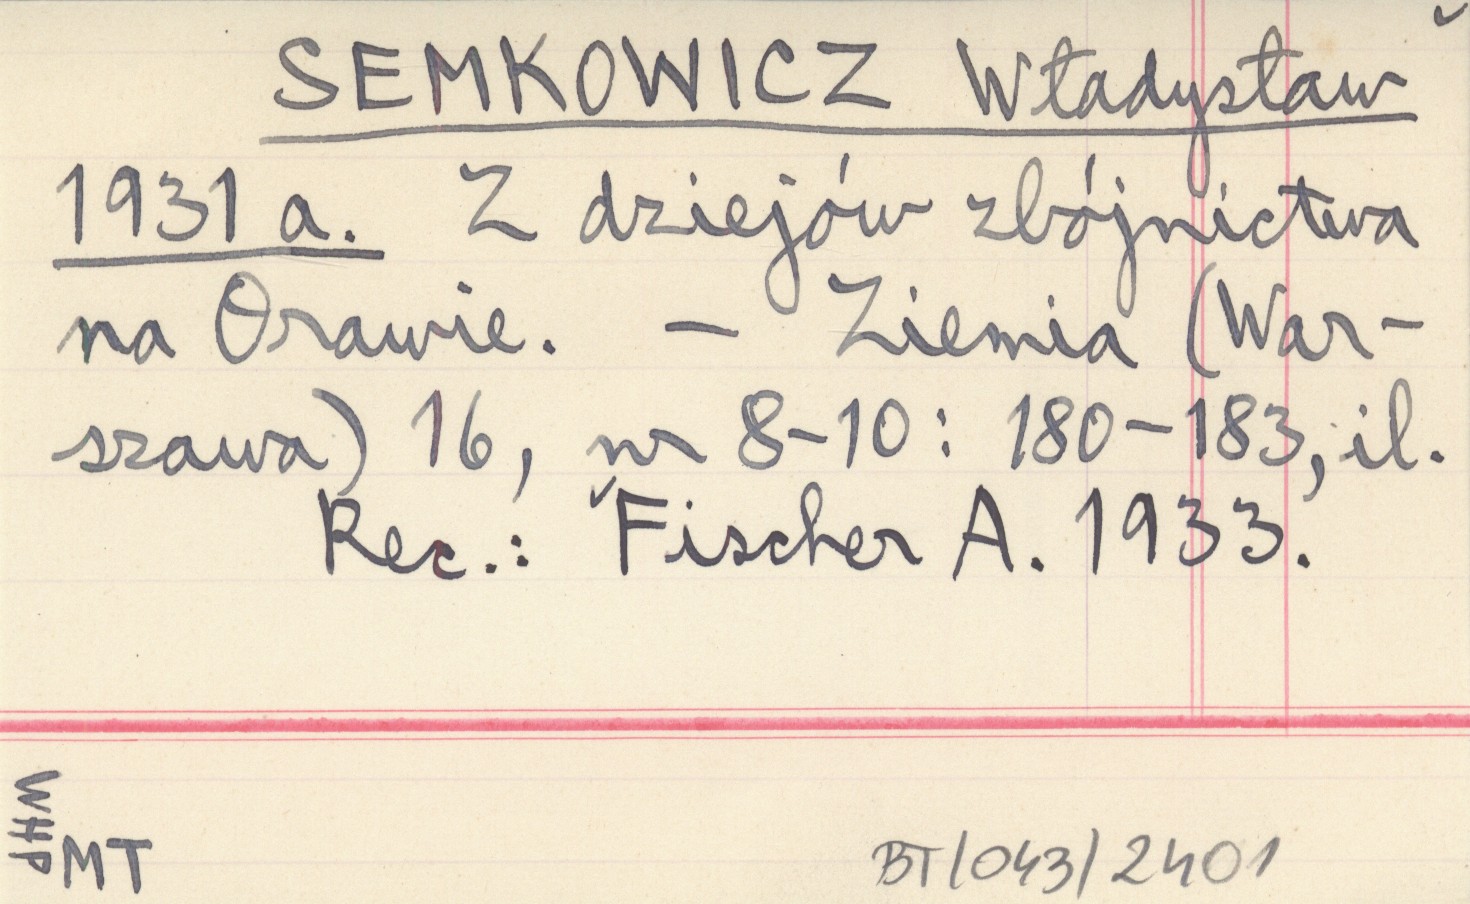 SEMKOWICZ Władysław
1931 a. Z dziejów zbójnictwa
na Orawie. — Ziemia (War-
szawa) 16, nr 8-10: 180-183, il.
Rec.: Fischer A. 1933.
WHP
MT
BT/043/2401